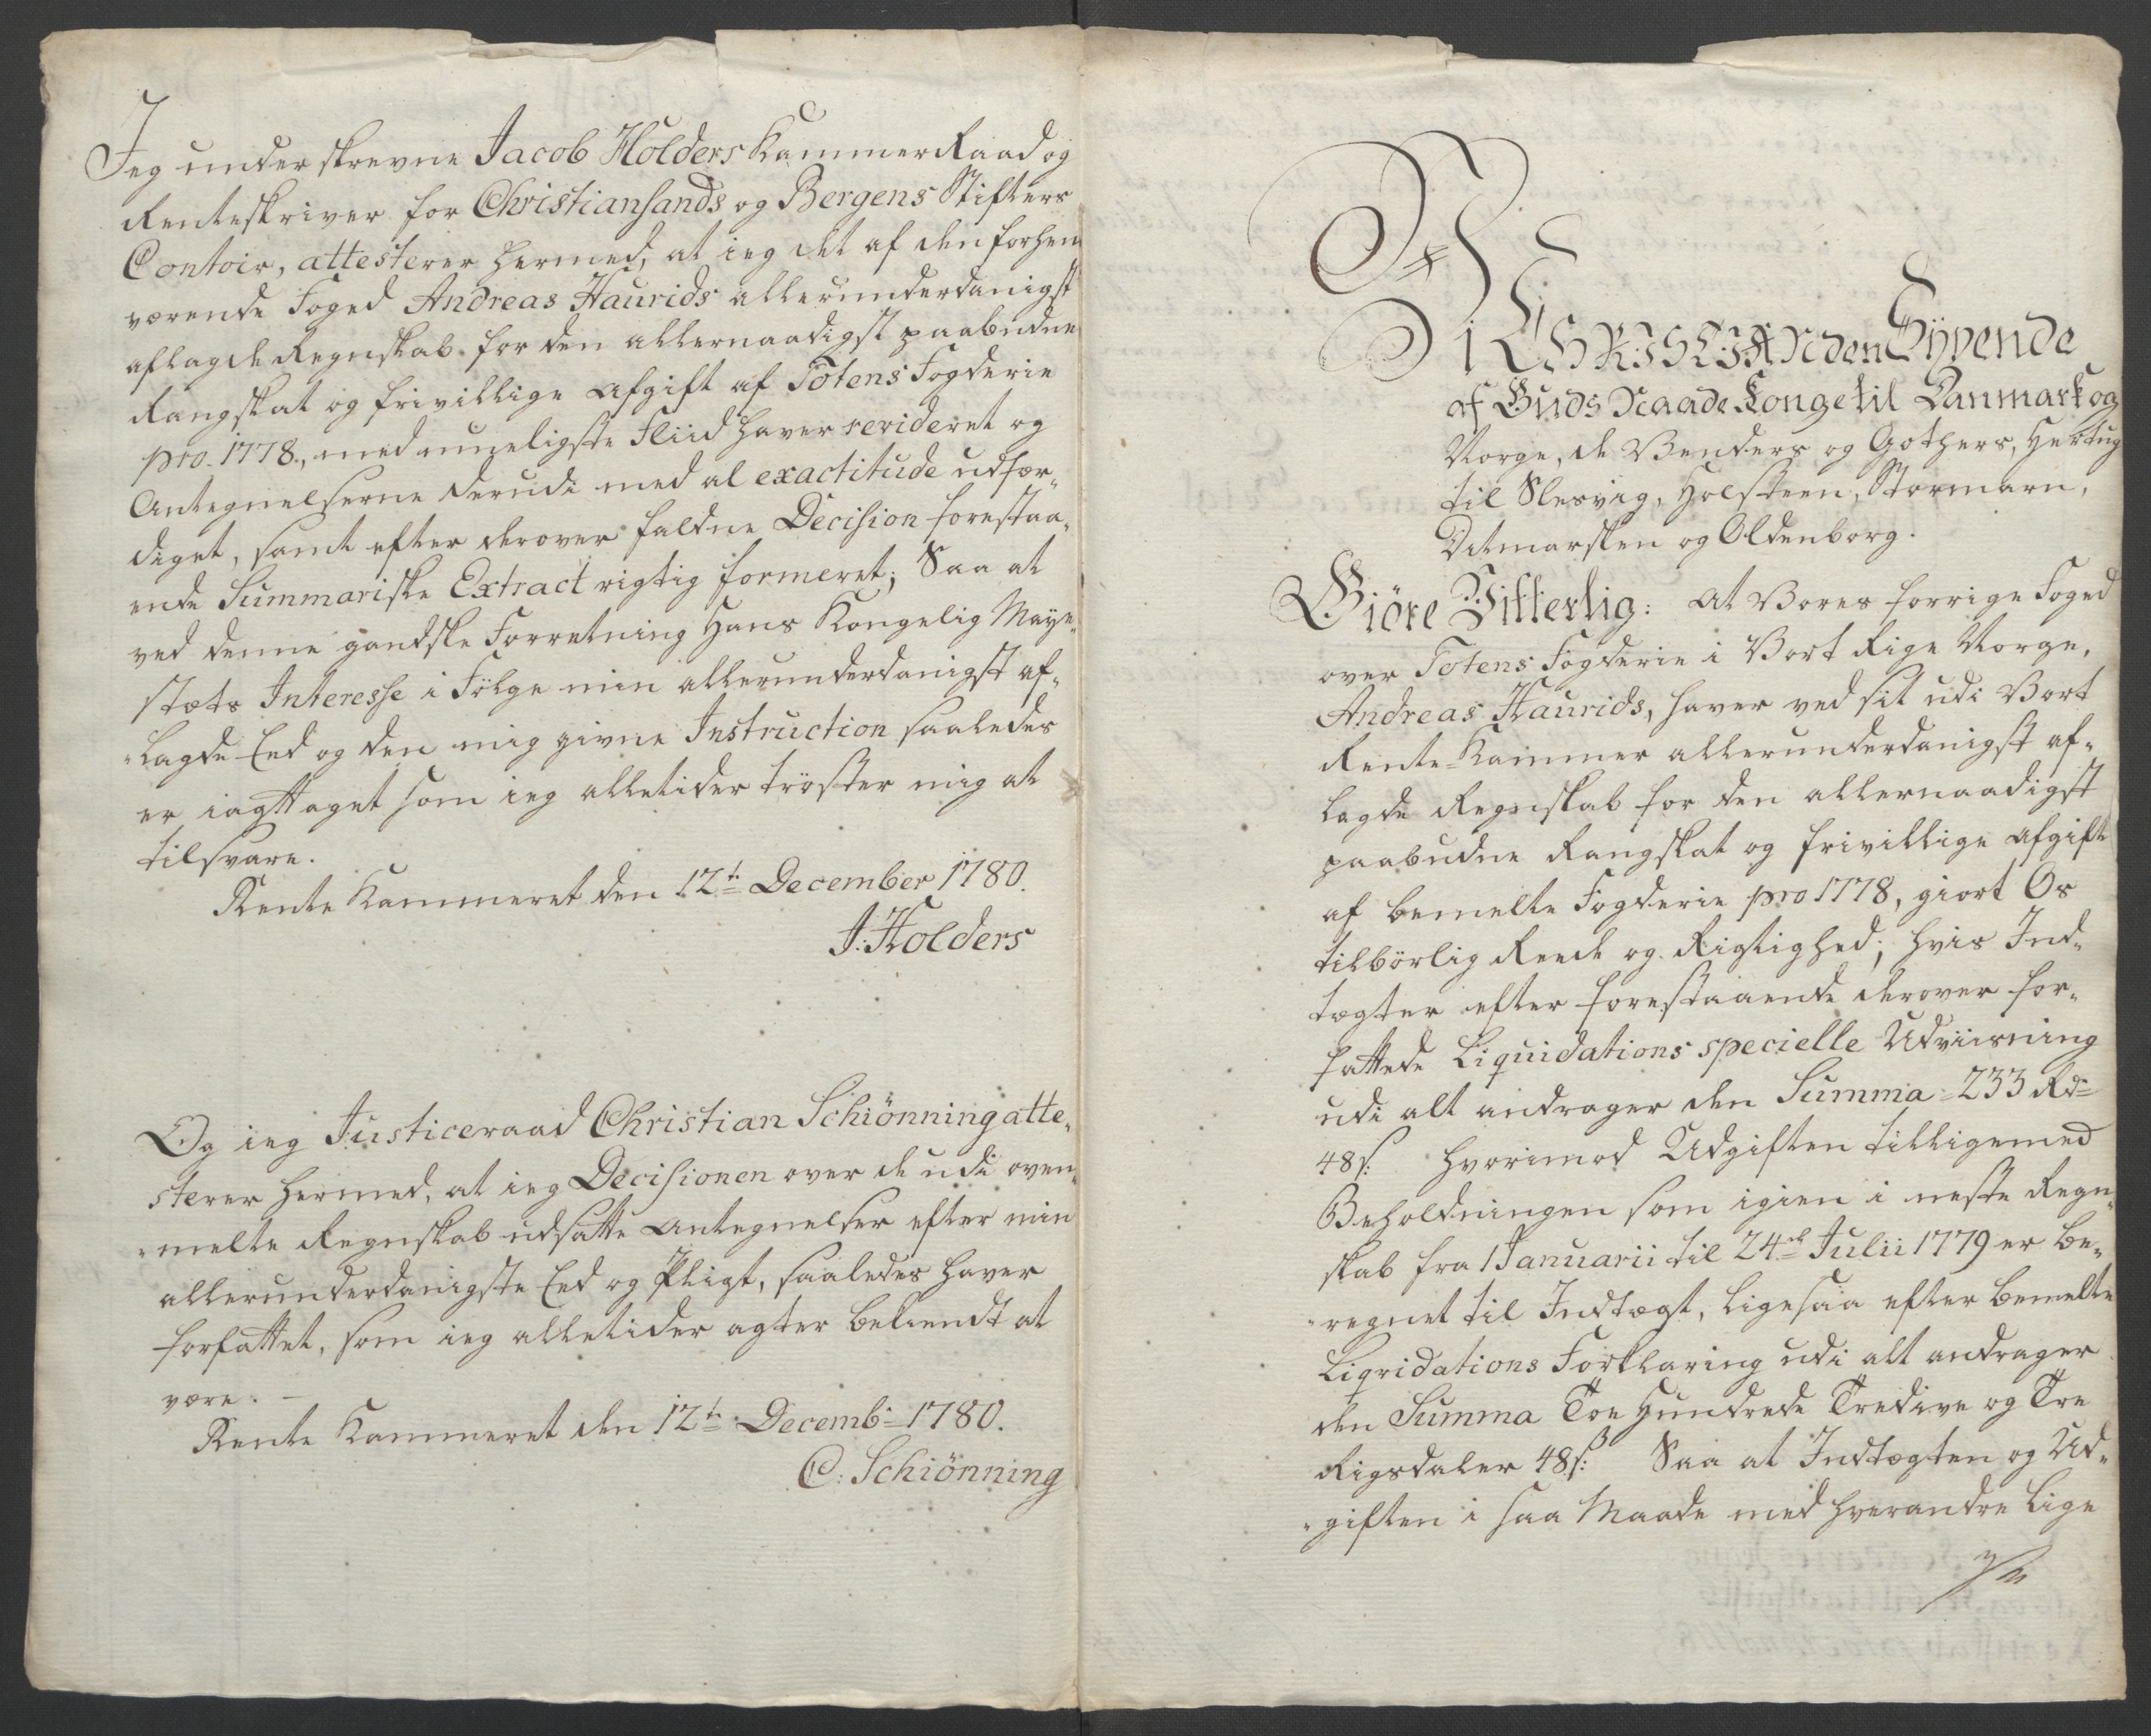 Jeg underskrevne Jacob Holders KammerRaad og
Renteskriver for Christiansands og Bergens Stifters
Contoir, attesterer hermed, at ieg det af den forhen
værende Foged Andreas Haurids allerunderdanigst
aflagde Regnskab for den allernaadigst paabudne
Rangskat og frivillige Afgift af Totens Fogderie
pro 1778., med mueligste Fliid haver revideret og
Antegnelserne derudi med al exactitude udfær„
diget, samt efter derover faldne Decision forestaa„
ende Summariske Extract rigtig formeret; Saa at
ved denne gandske Forretning Hans Kongelig Maye„
stæts Interesse i Fölge min allerunderdanigst af„
„lagde Eed og den mig givne Instruction saaledes
er iagttaget som ieg alletider tröster mig at
tilsvare.
Rente Kammeret den 12te December 1780.
J: Holders
Og ieg Justiceraad Christian Schiönning atte„
sterer hermed, at ieg Decisionen over de udi oven„
„melte Regnskab udsatte Antegnelser efter min
allerunderdanigste Eed og Pligt, saaledes haver
forfattet, som ieg alletider agter bekiendt at
være.
Rente Kammeret den 12te Decemb: 1780.
C: Schiönning
Vi CHRISTIAN den Syvende
af Guds Naade Konge til Danmark og
Norge, de Venders og Gothers, Hertug
til Slesvig, Holsteen, Stormarn,
Ditmarsken og Oldenborg.
Giöre Vitterlig: At Vores forrige Foged
over Totens Fogderie i Vort Rige Norge,
Andreas Haurids, haver ved sit udi Vort
Rente-Kammer allerunderdanigst af„
lagde Regnskab for den allernaadigst
paabudne Rangskat og frivillige Afgift
af bemelte Fogderie pro 1778, giort Os
tilbörlig Reede og Rigtighed; hvis Ind„
tægter efter forestaaende derover for„
fattede Liquidations specielle Udviisning
udi alt andrager den Summa 233 Rd
48 s: hvorimod Udgiften tilligemed
Beholdningen som igien i neste Regn„
skab fra 1 Januarii til 24de Julii 1779 er be„
„regnet til Indtægt, ligesaa efter bemelte
Liqvidations Forklaring udi alt andrager
den Summa Toe Hundrede Tredive og Tre
Rigsdaler 48 s: Saa at Indtægten og Ud„
„giften i saa Maade med hverandre lige